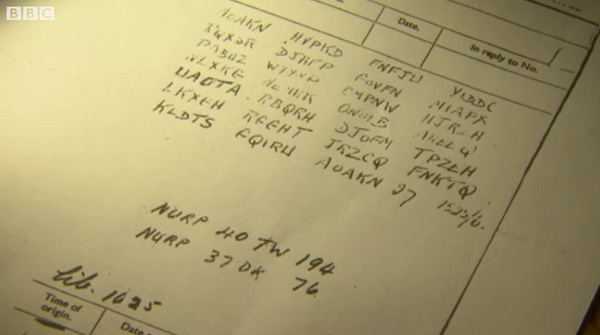 BBC
Date.
In reply to No.
AOAKN HVPKD FNFJW YIDDC
RQXSR DJHFP GOVFN MIAPX
PABUZ WYYNP CMPNW HJRZH
NLXKG MEMKK ONOIB AKEEQ
UAOTA RBQRH DJOFM TPZEH
LKXGH RGGHT JRZCQ FNKTQ
KLDTS GQIRU AOAKN 27 1525/6.
NURP 40 TW 194
NURP 37 DK 76
lib. 1625
Time of
origin.
Date